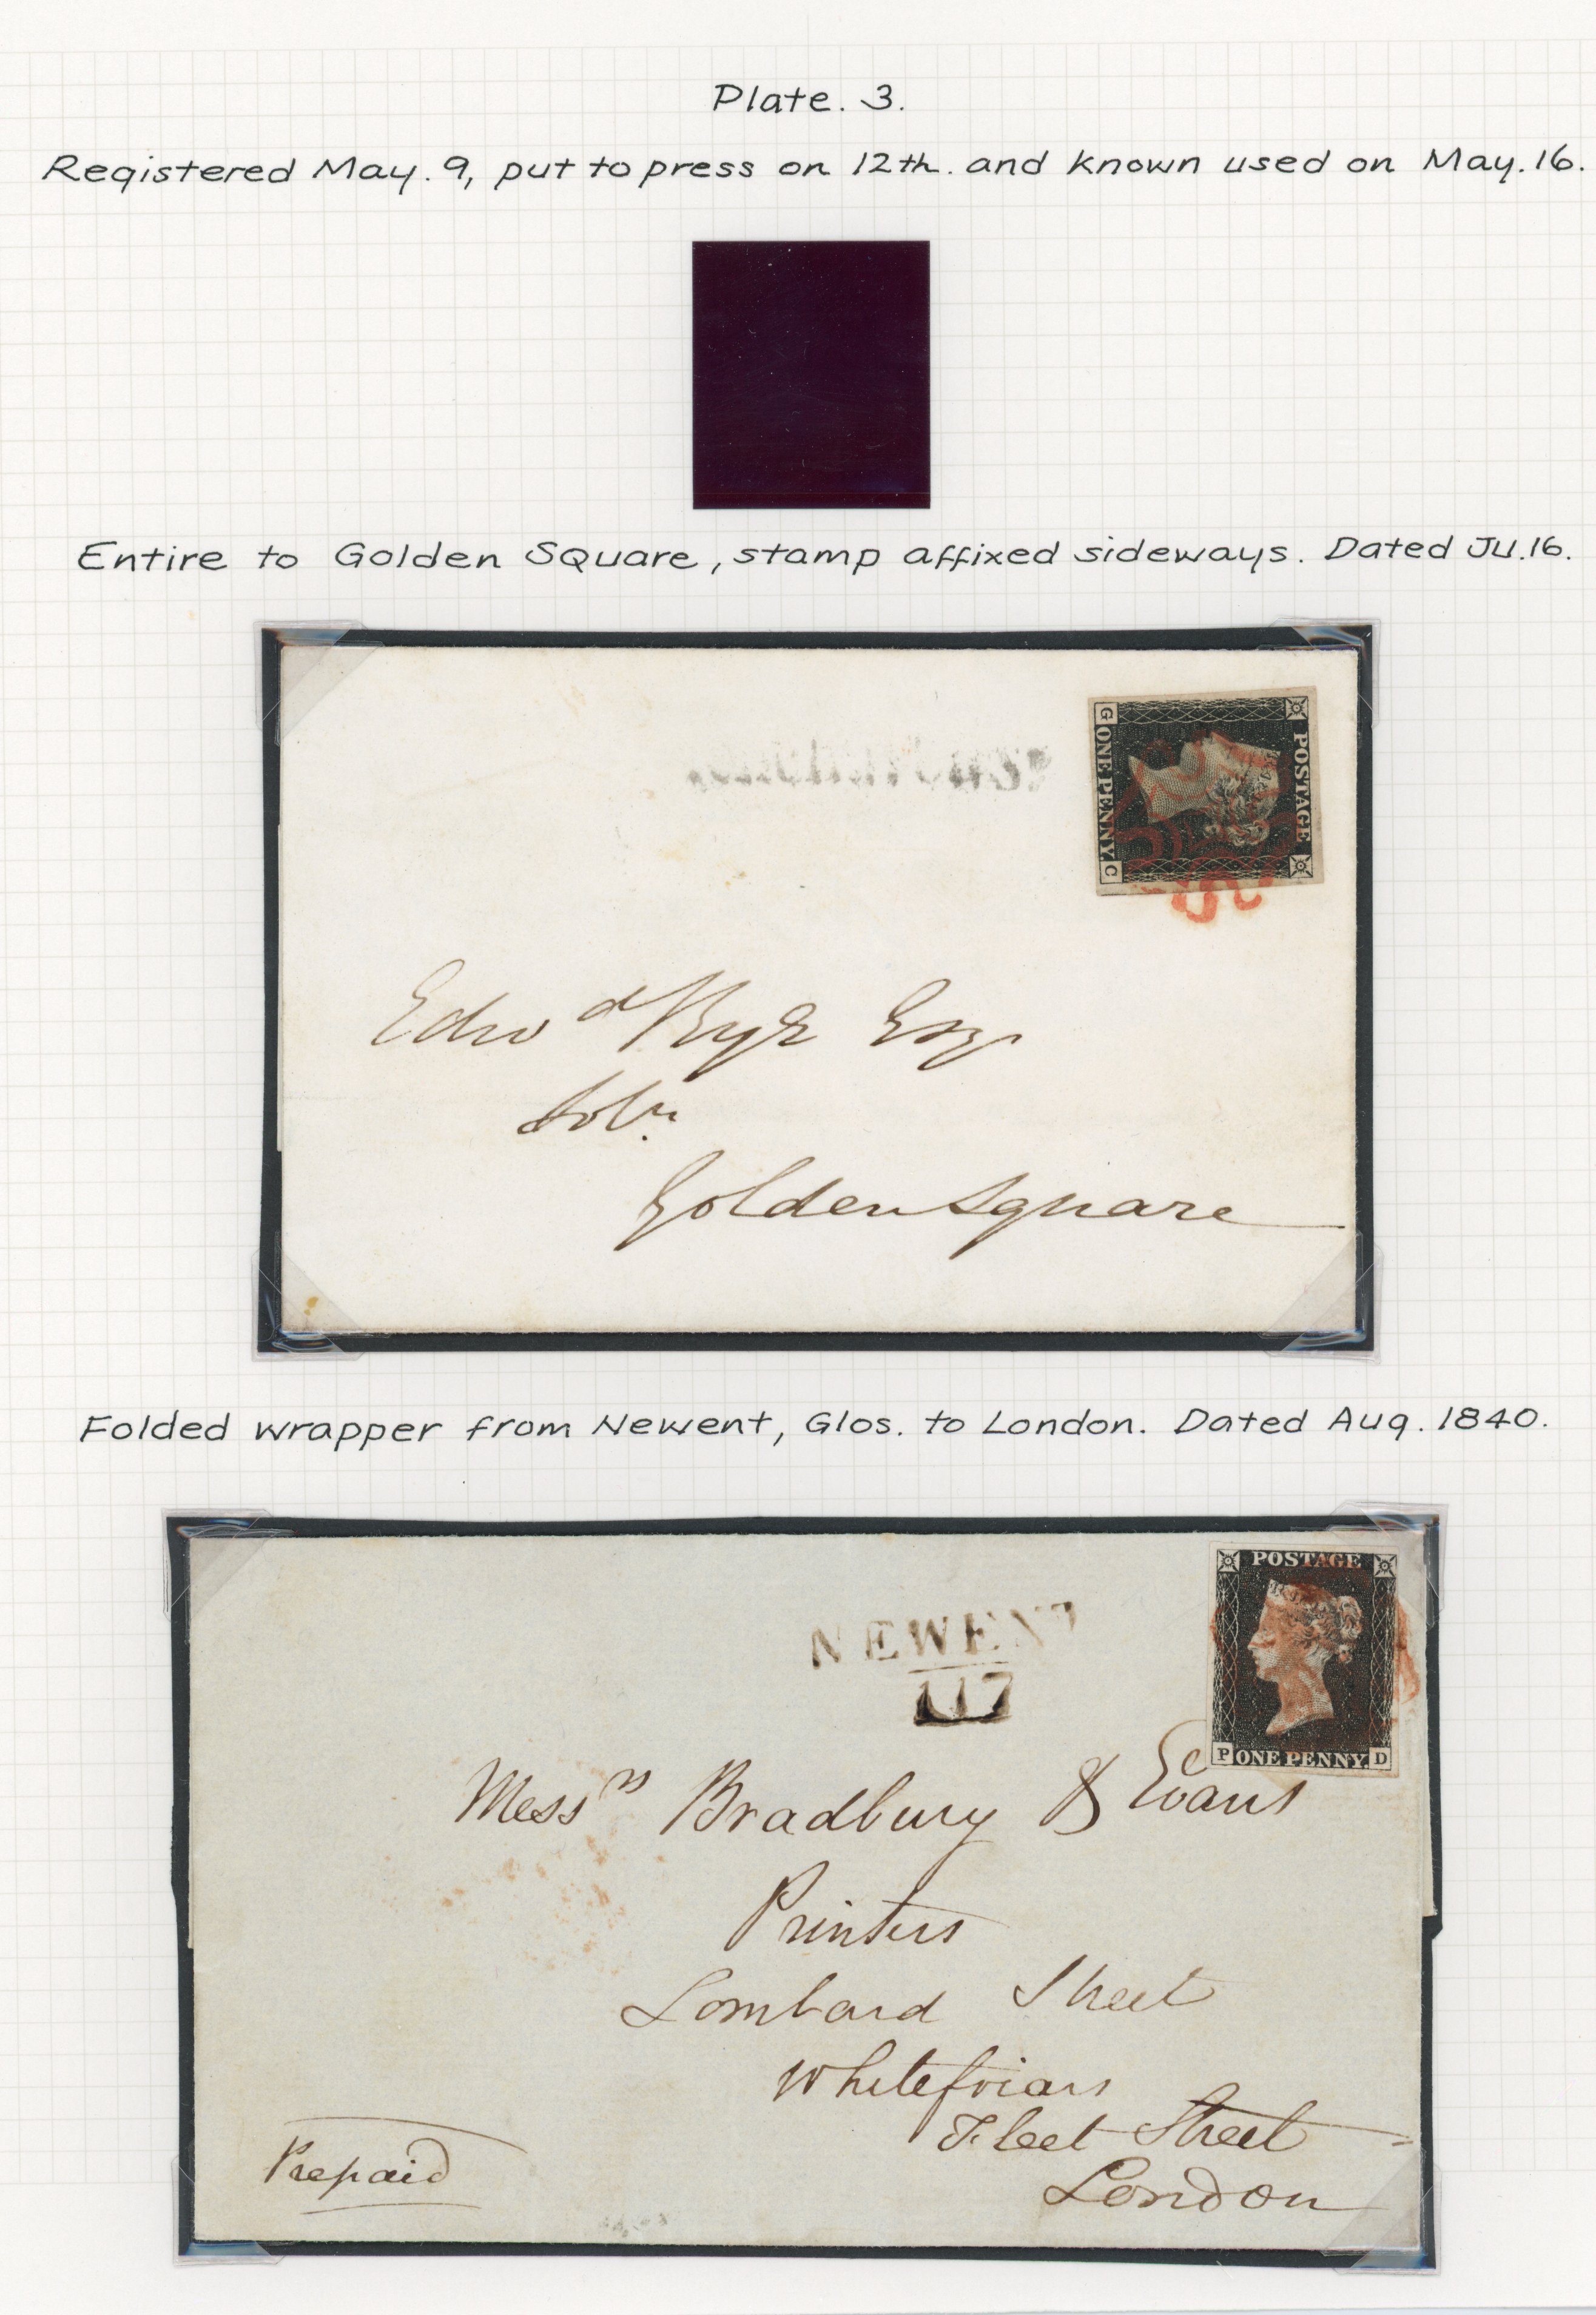 Plate. 3.
Registered May. 9, put to press on 12th. and known used on May. 16.
Entire to Golden Square, stamp affixed sideways. Dated JU.16.
POSTAGE
G ONE PENNY C
Edwd Esq
Solr.
Golden Square
Folded wrapper from Newent, Glos. to London. Dated Aug. 1840.
POSTAGE
NEWENT
117
P ONE PENNY. D
Messrs Bradbury & Evans
Printers
Lombard Street
Whitefriars
Fleet Street
London
Prepaid